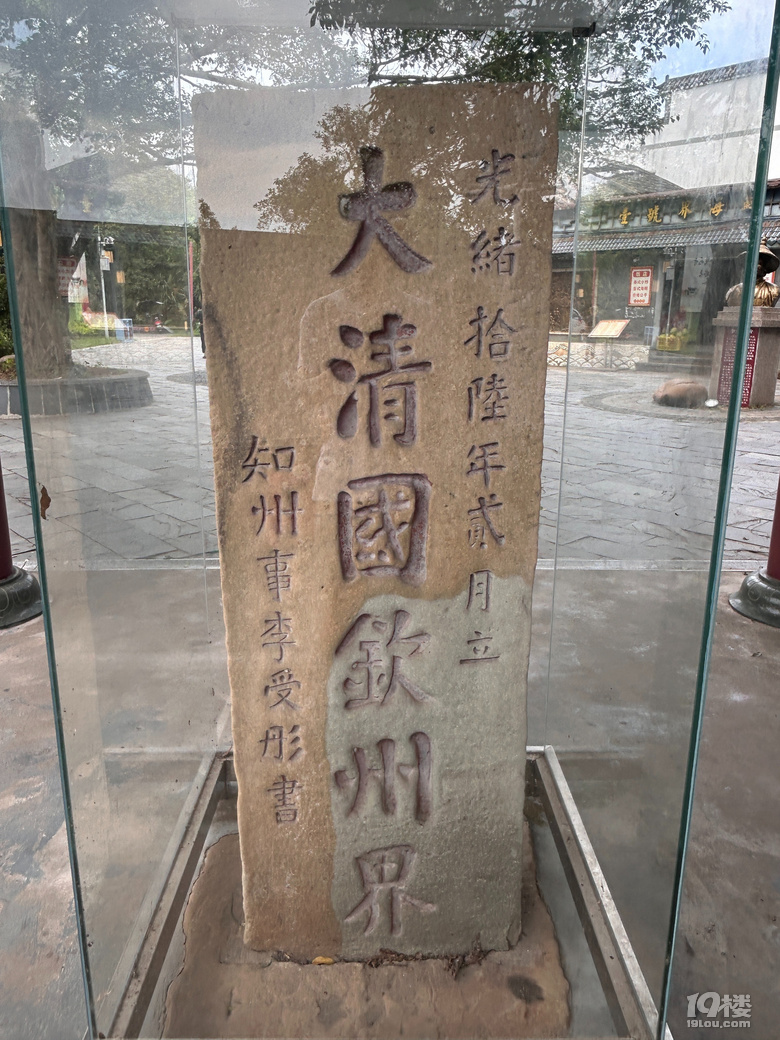 光緒拾陸年貳月立
大清國欽州界
知州事李受彤書
19楼
19lou.com